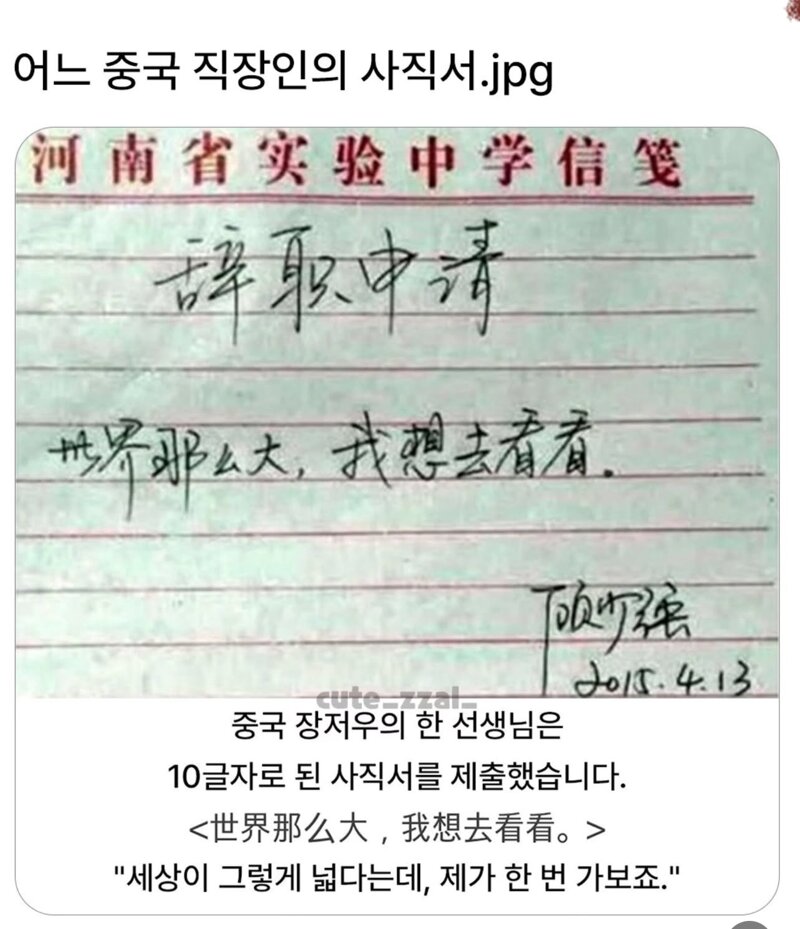 어느 중국 직장인의 사직서.jpg
河南省实验中学信笺
辞职申请
世界那么大，我想去看看。
顾少强
2015.4.13
cute_zzal_
중국 장저우의 한 선생님은
10글자로 된 사직서를 제출했습니다.
<世界那么大，我想去看看。>
"세상이 그렇게 넓다는데, 제가 한 번 가보죠."